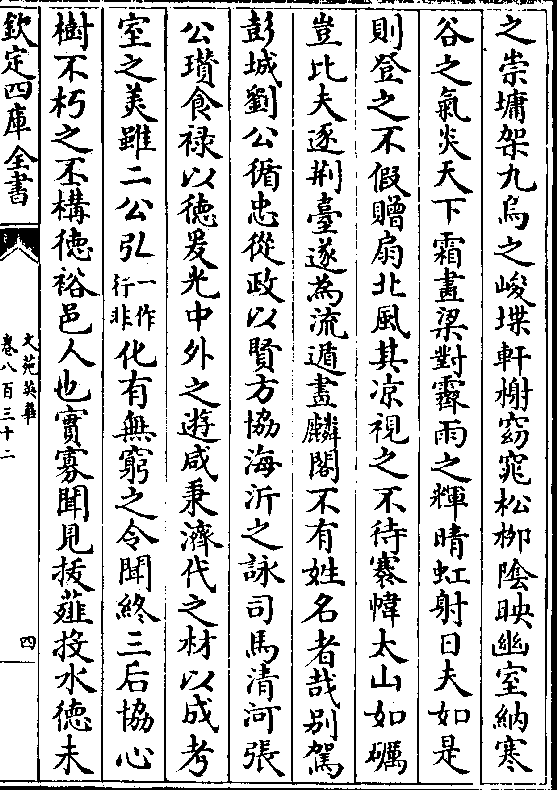 之崇墉架九烏之峻堞軒榭窈窕松栁陰映幽室納寒
谷之氣炎天下霜畫梁對霽雨之輝晴虹射日夫如是
則登之不假贈扇北風其凉視之不待褰幃太山如礪
豈比夫逐荆臺遂為流遁畫麟閣不有姓名者哉别駕
彭城劉公循忠從政以賢方協海沂之詠司馬清河張
公瓚食禄以德爰光中外之遊咸秉濟代之材以成考
室之美雖二公弘一作行非化有無窮之令聞終三后協心
樹不朽之丕構德裕邑人也實寡聞見㧞薤投水德未
欽定四庫全書
文苑英華
卷八百三十二
四